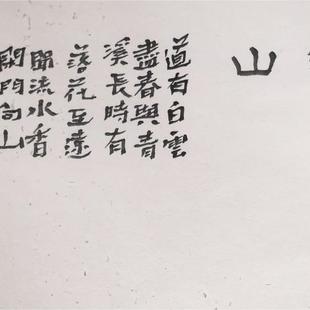 山
道有白雲
盡春與青
溪長時有
落花至遠
聞流水香
閑門向山